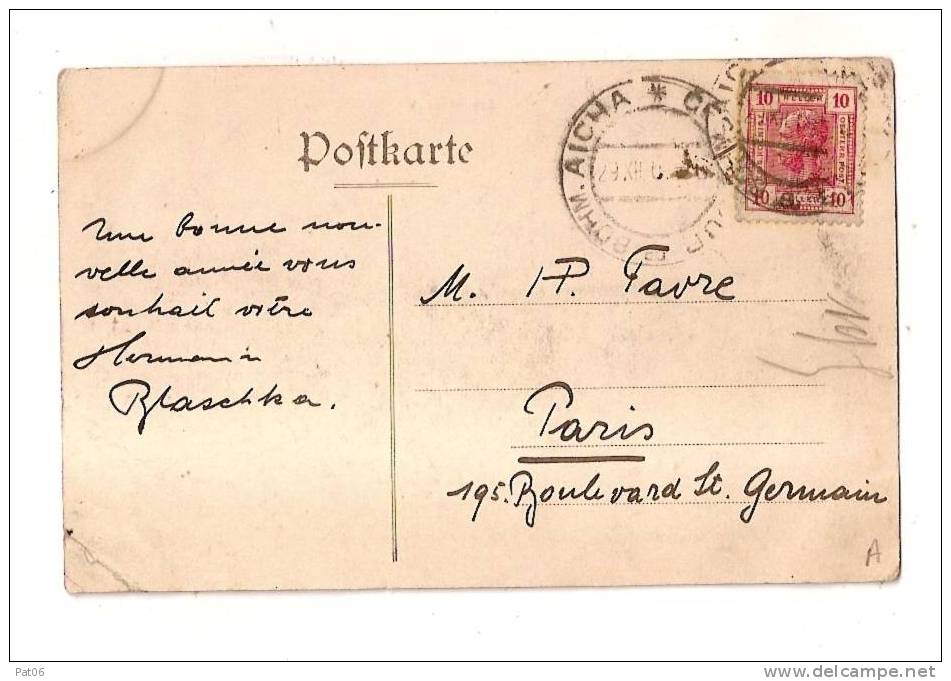 Postkarte
BÖHM. AICHA * ČESKÝ DUB
29.XII.0
10 HELLER 10
10 HELLER 10
Une bonne nou-
velle année vous
souhait vôtre
Hermann
Blaschka.
M. HP. Favre
Paris
195. Boulevard St. Germain
A
Pat06
www.delcampe.net